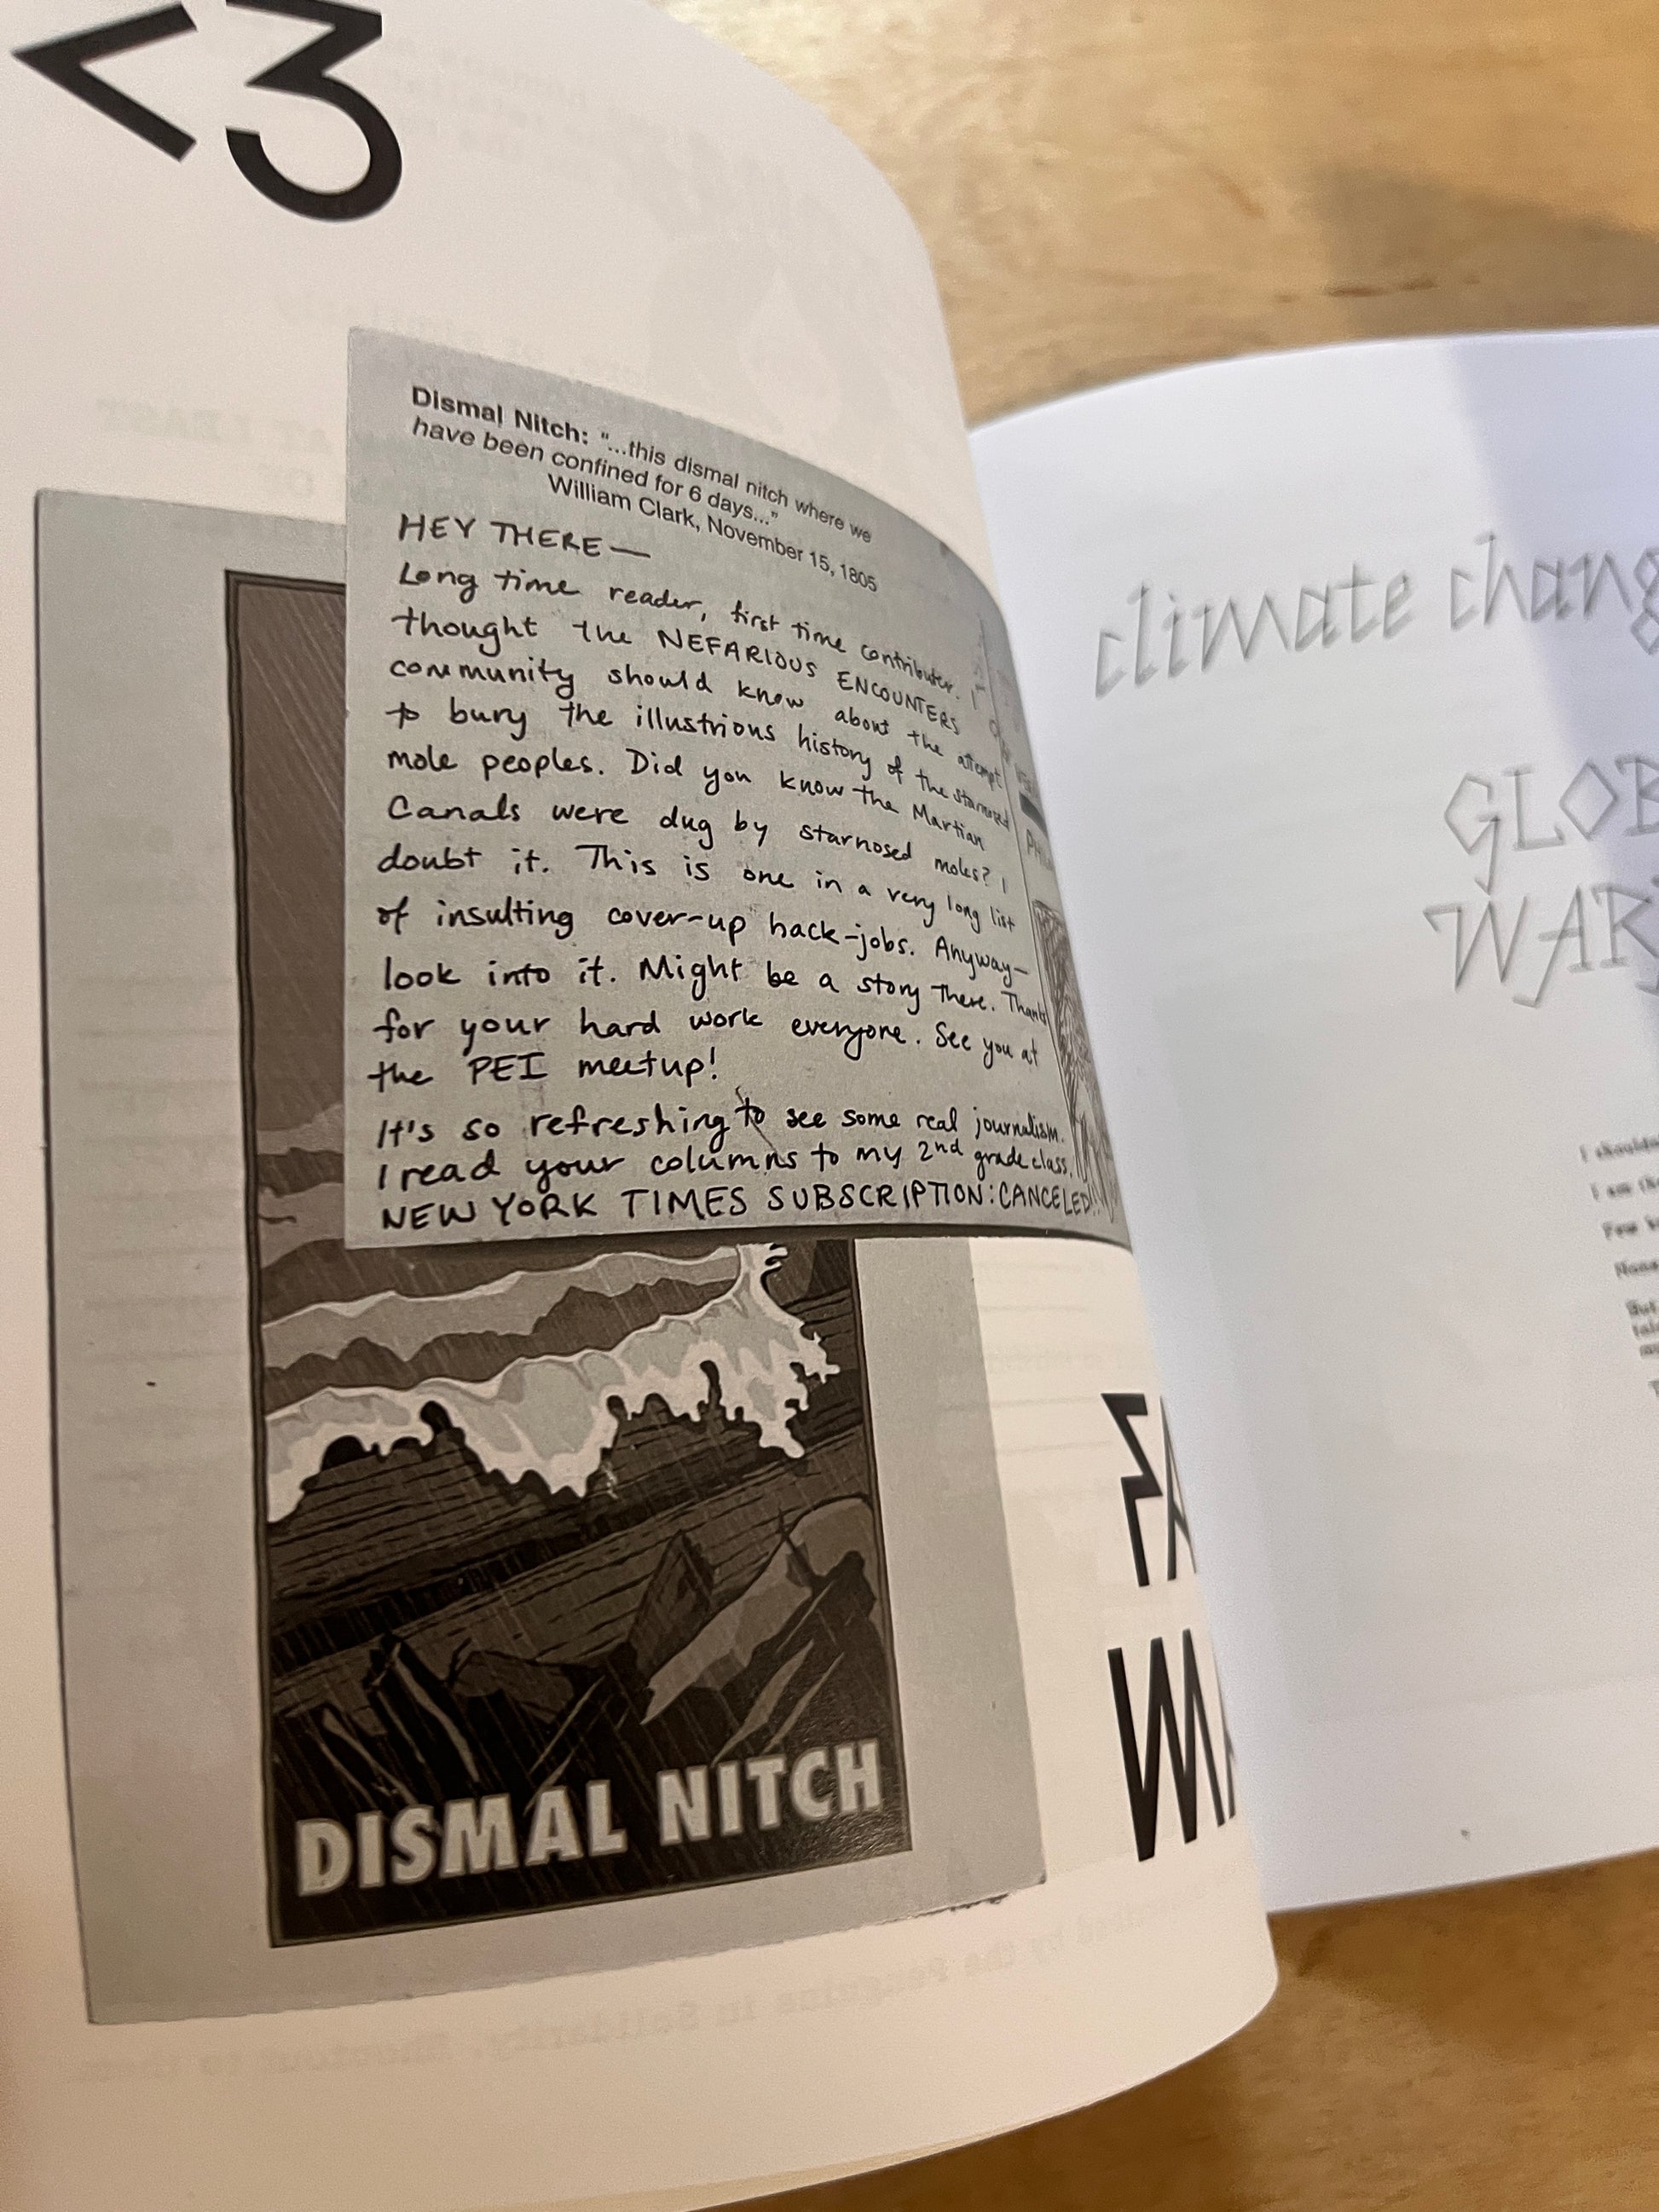 <3
Dismal Nitch: "...this dismal nitch where we
have been confined for 6 days..."
William Clark, November 15, 1805
HEY THERE—
Long time reader, first time contributer. I
thought the NEFARIOUS ENCOUNTERS
community should know about the attempt
to bury the illustrious history of the starnosed
mole peoples. Did you know the Martian
Canals were dug by starnosed moles? I
doubt it. This is one in a very long list
of insulting cover-up hack-jobs. Anyway—
look into it. Might be a story there. Thanks
for your hard work everyone. See you at
the PEI meetup!
It's so refreshing to see some real journalism.
I read your columns to my 2nd grade class.
NEW YORK TIMES SUBSCRIPTION: CANCELED!!
DISMAL NITCH
climate chang
GLOB
WAR
I should
I am the
Few
But